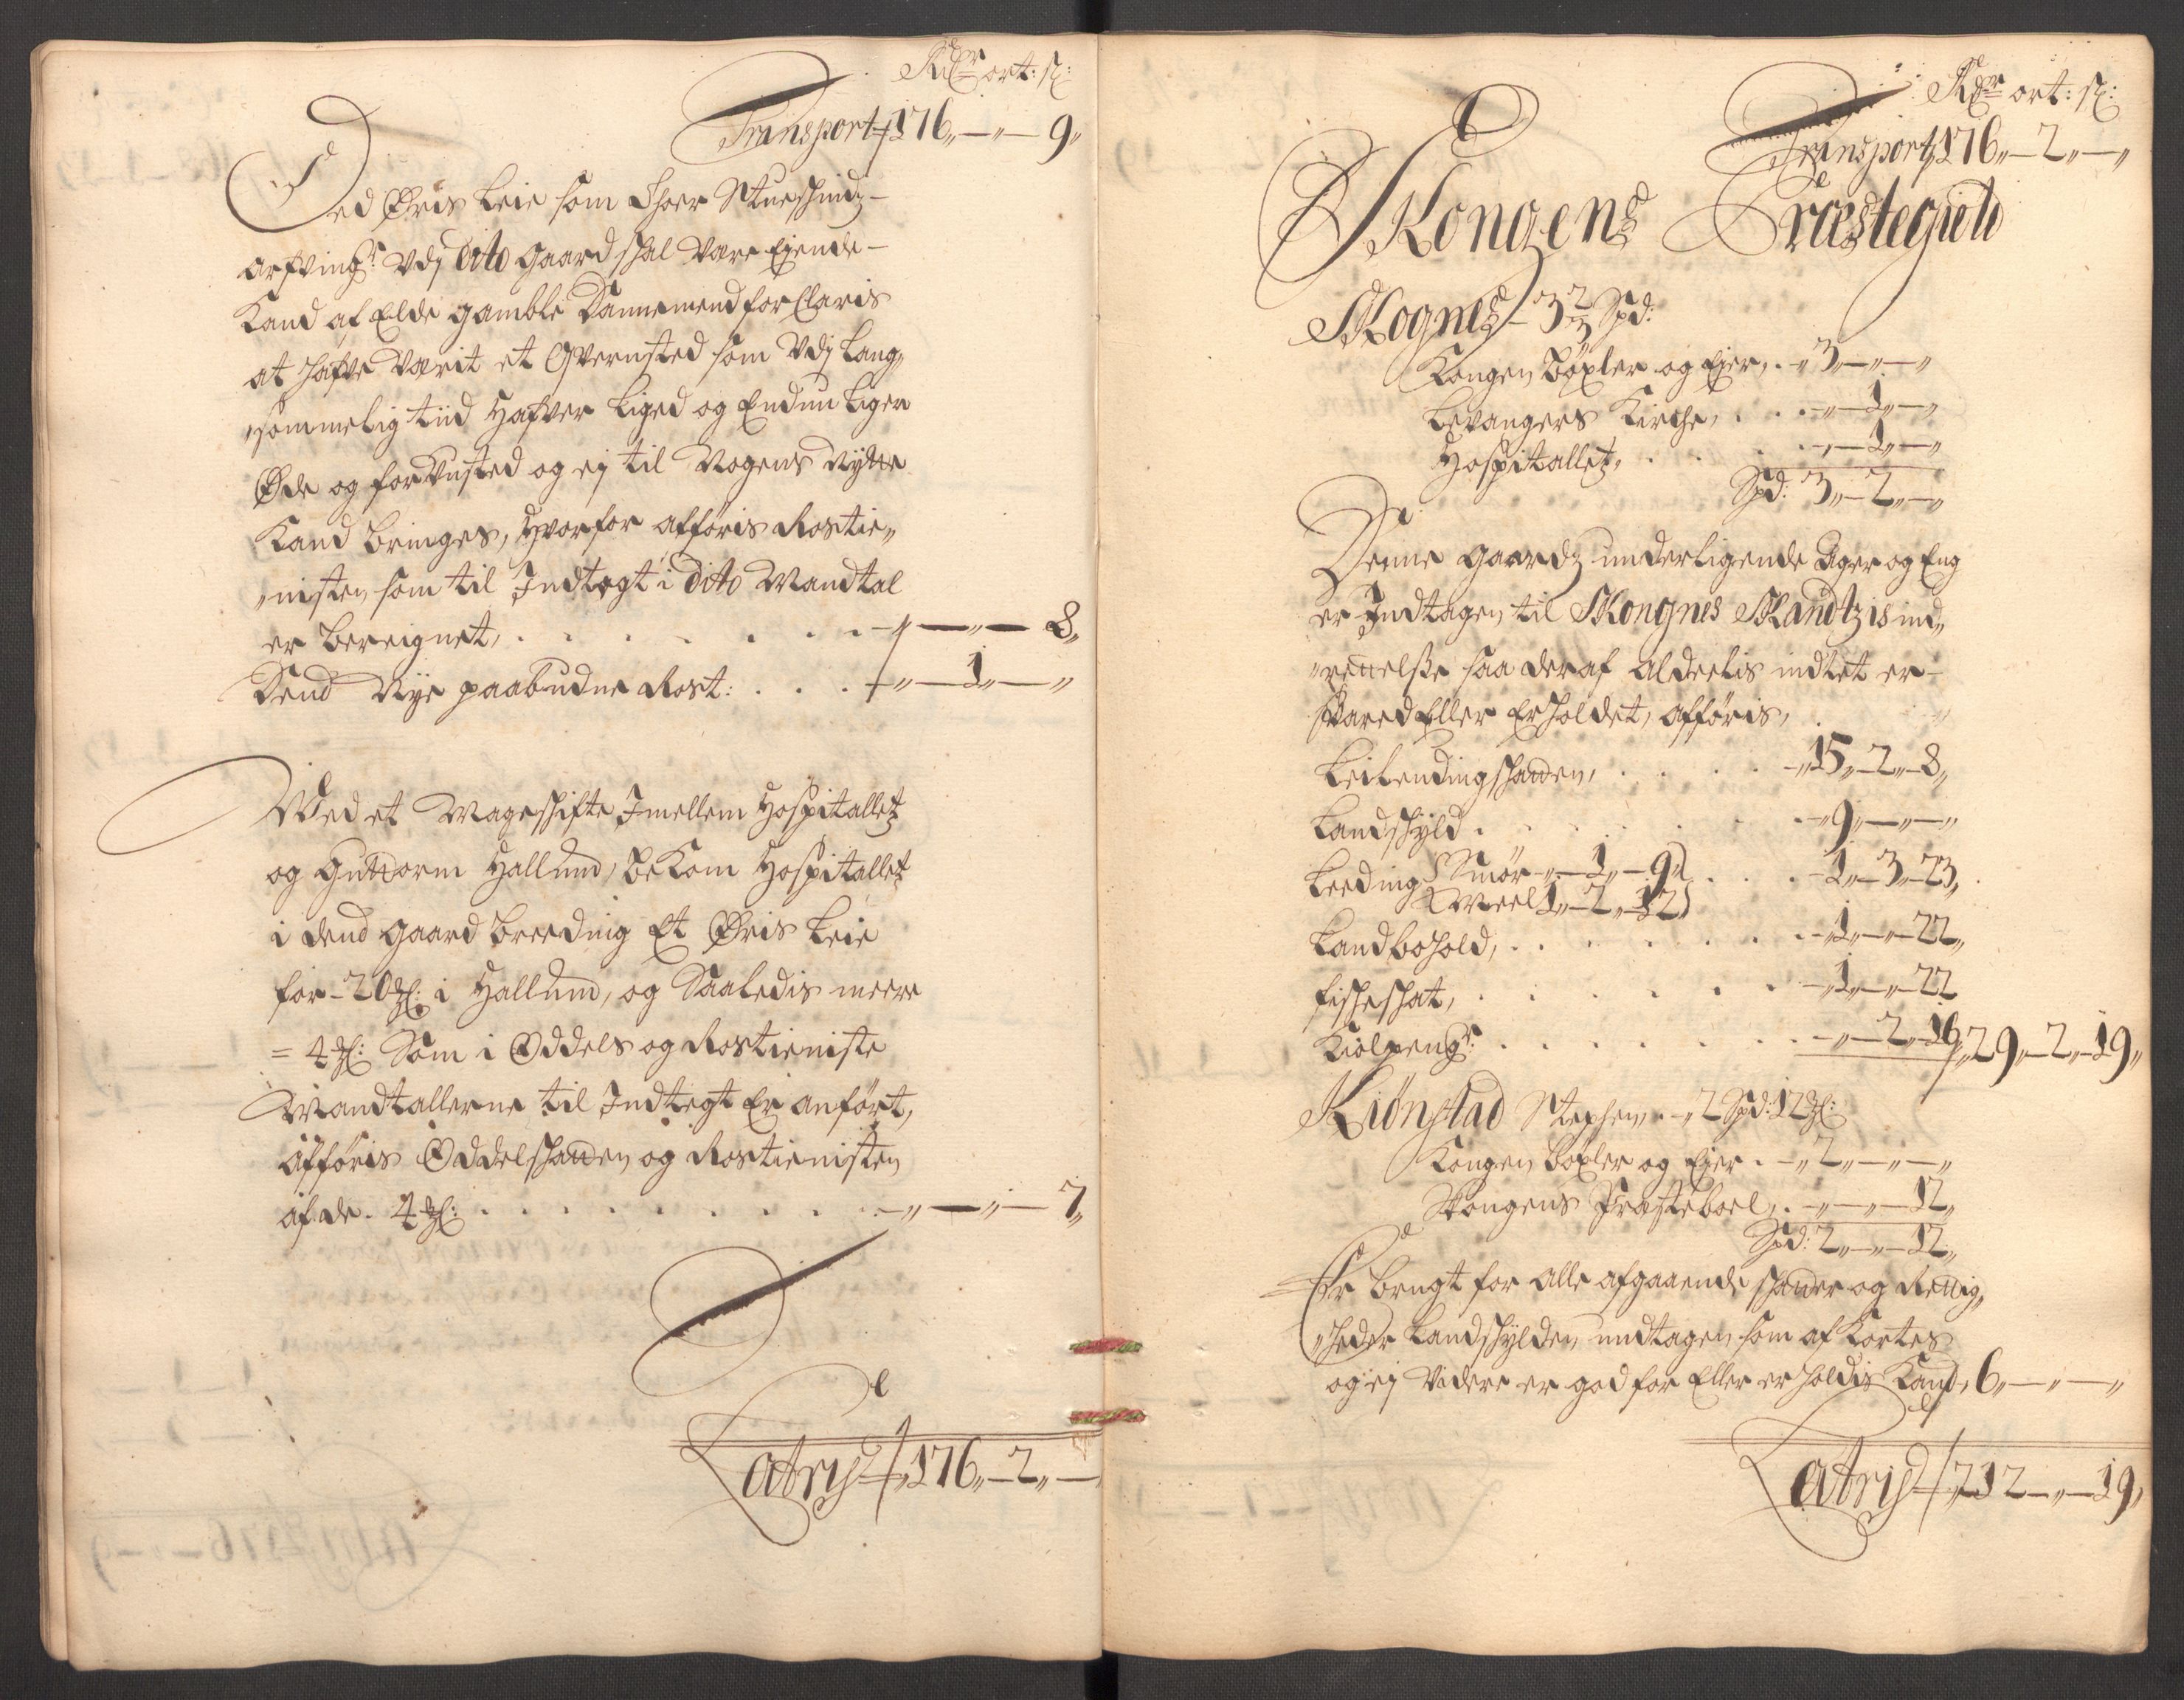 Rdr ort: s:
Transport 176,,—,,—9,,
Ted Øris Leie som Thoer Stuesmidz-
arfving: Udj dito gaard skal Være Ejende-
Kand af Elde gamble Dannemend forClaris
at hafve Værit et Qvernsted som Udj Lang,,
,,sommelig tiid hafver Liged og Endnu Liger
Øde og forVusted og ej til Nogens Nytte
Kand bringes, hvorfor afføris Rostie,,
,,nisten som til Indtegt i dito Mandtal
er bereignet, . . . . . . -,,—,,—8,,
Dend Nye paabudne Rost: . . . -,,—1,,—,,
Ved et Mageskifte Imellem Hospitallet
og Guttorm Hallum, beKom Hospitallet
i dend gaard Breeding Et Øris Leie
for-20 : i Hallum, og Saaledis meere
= 4 : Som i Oddels og Rostieniste
Mandtallerne til Indtegt Er anført,
afføris Oddelskatten og Rostienisten
af de. 4 : . . . . . . . -,,—,,—7,,
Latris 176,,—2,,—
Rdr ort: s:
Transport 176,,—2,,—,,
SKongens Præstegield
SKognes - 3 2/3 Spd:
Kongen Böxler og Ejer, . -,,3,,—,,—,,
Levangers Kirche, . . . -,,—1,,—,,
Hospitallet, . . . . -,,—1,,—,,
Spd: 3,,—2,,—,,
Denne gaardz underligende Ager og Eng
er Indtagen til SKongnes SKandtzis ind,,
,,rettelsse saa deraf aldeelis indtet er-
svared Eller Erholdet, afføris,
Leilendingskatten, . . . . -,,15,,—2,,—8,,
Landskyld . . . . . . . -,,9,,—,,—,,
Leeding Smør -,,—1,,—9,, . . . . -1,,—3,,—23,,
Meel 1,,—2,,—12
Landbohold, . . . . . . . -,,1,,—,,—22,,
fiskeskat, . . . . . . . -,,1,,—,,—22
Kiolpeng: . . . . . . . -,,—2,,—16,, 29,,—2,,—19,,
Kiönstad Stephen, . -,,2 Spd: 12 :
Kongen böxler og Ejer . -,,2,,—,,—,,
SKongens Præsteboel, . -,,—,,—12,,
Spd: 2,,—,,—12,,
Er brugt for alle afgaaende skatter og Rettig,,
,,heder Landskylden undtagen som af Kortes
og ej Videre er god for Eller erholdis Kand, 6,,—,,—,,
Latris 212—,,—19,,